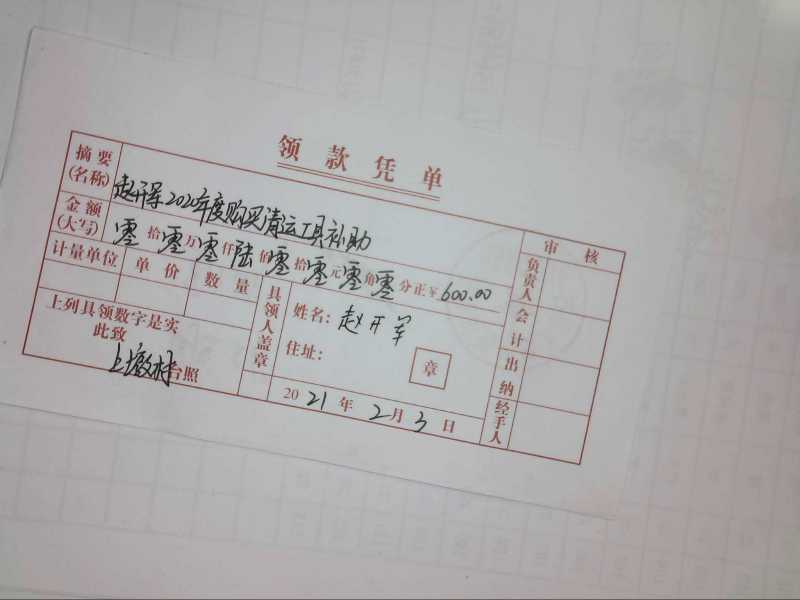 领款凭单
摘要(名称) 赵开军2020年度购买清运工具补助
金额(大写) 零拾零万零仟陆佰零拾零元零角零分正至600.00
计量单位 单价 数量
上列具领数字是实
此致
上墩村台照
具领人盖章
姓名:赵开军
住址:
章
2021年2月3日
审核
负责人
会计
出纳
经手人